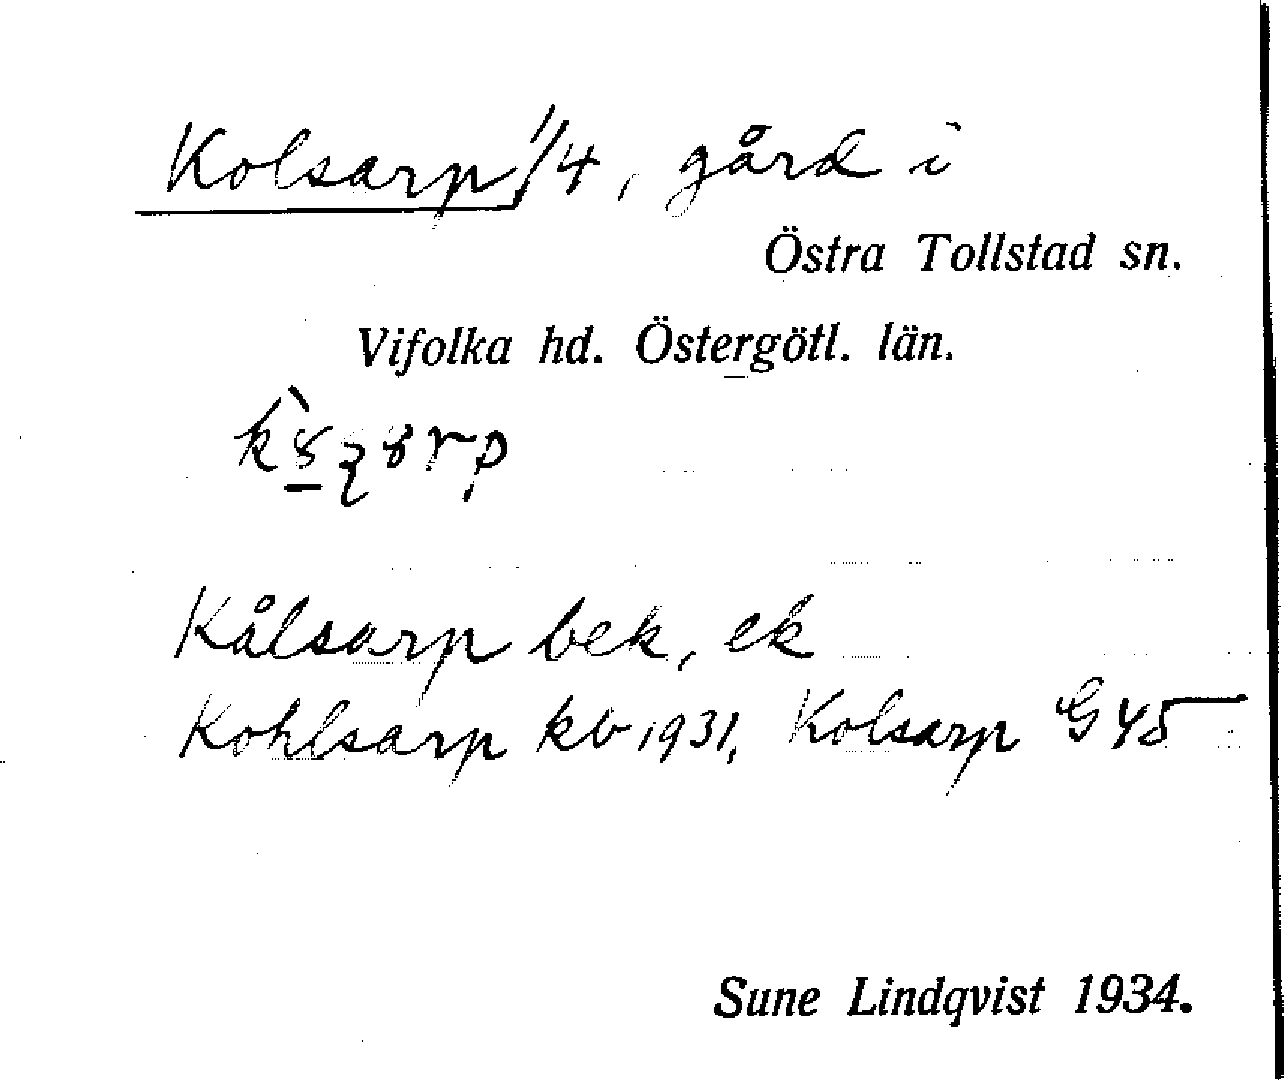 Kolsarp 1/4, gård i
Östra Tollstad sn.
Vifolka hd. Östergötl. län.
Kålsarp bek, ek
Kohlsarp kb 1931, Kolsarp G 45
Sune Lindqvist 1934.